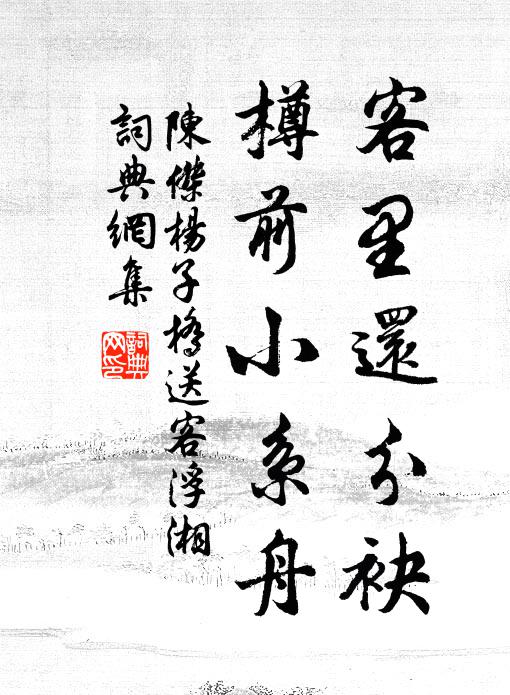 客里還分袂
樽前小系舟
陳傑楊子橋送客浮湘
詞典網集
詞典
网印